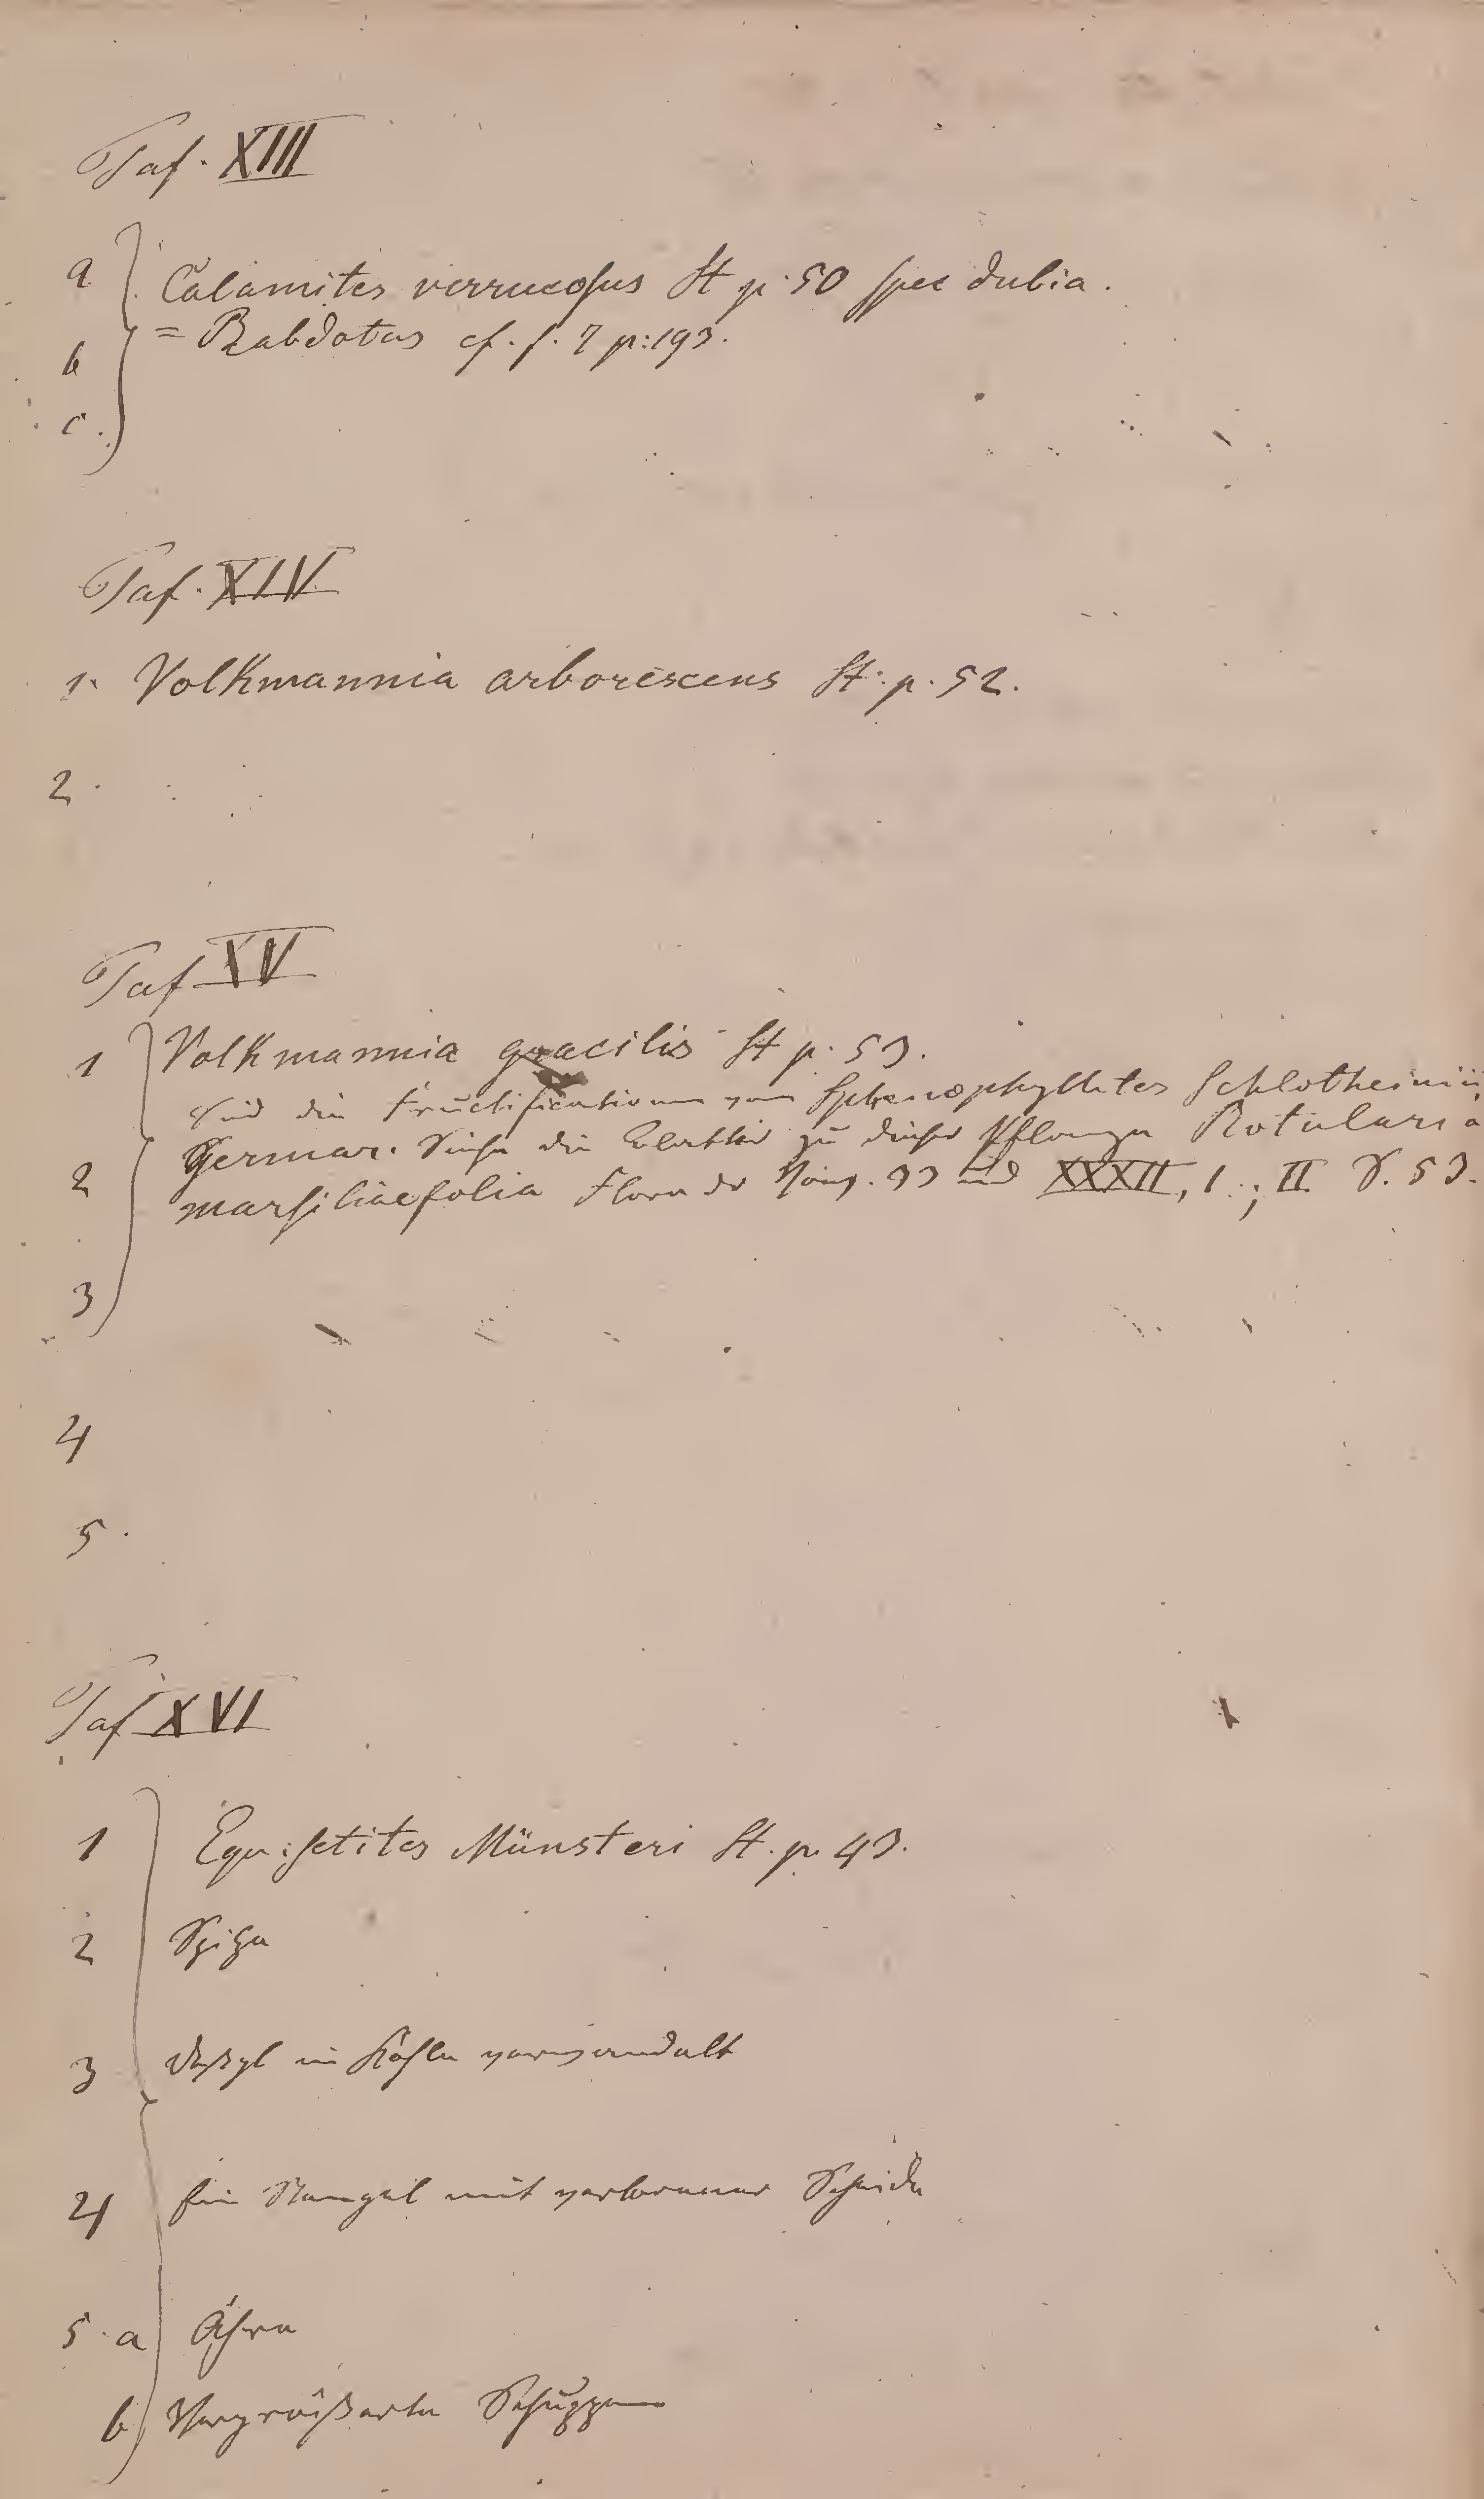 Taf. XIII
a Calamites verrucosus St p. 50 spec dubia.
b = Rabdotus cf. f. 7 p: 193.
c.
Taf. XIV
1. Volkmannia arborescens St. p. 52.
2.
Taf XV
1 Volkmannia gracilis St p. 53.
sind die Fructificationen von Sphenophyllites Schlotheimii
Germar. Siehe die Blätter zu dieser Pflanze Rotularia
2 marsiliaefolia Flora der Vorw. 33 und XXXII, 1.; II S. 53.
3
4
5.
Taf XVI
1 Equisetites Münsteri St. p. 43.
2 Spitze
3 in Kohle verwandelt
4 Ein Stengel mit verlorener Scheide
5. a Ähre
b Vergrößerte Schuppen